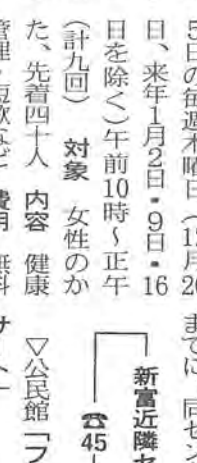 5日の毎週木曜日(12月26
日、来年1月2日・9日・16
日を除く)午前10時~正午
(計九回) 対象 女性のか
た、先着四十人 内容 健康
管理・短歌など 費用 無料
までに 同セン
新富近隣セ
☎45
▽公民館「フ
サート